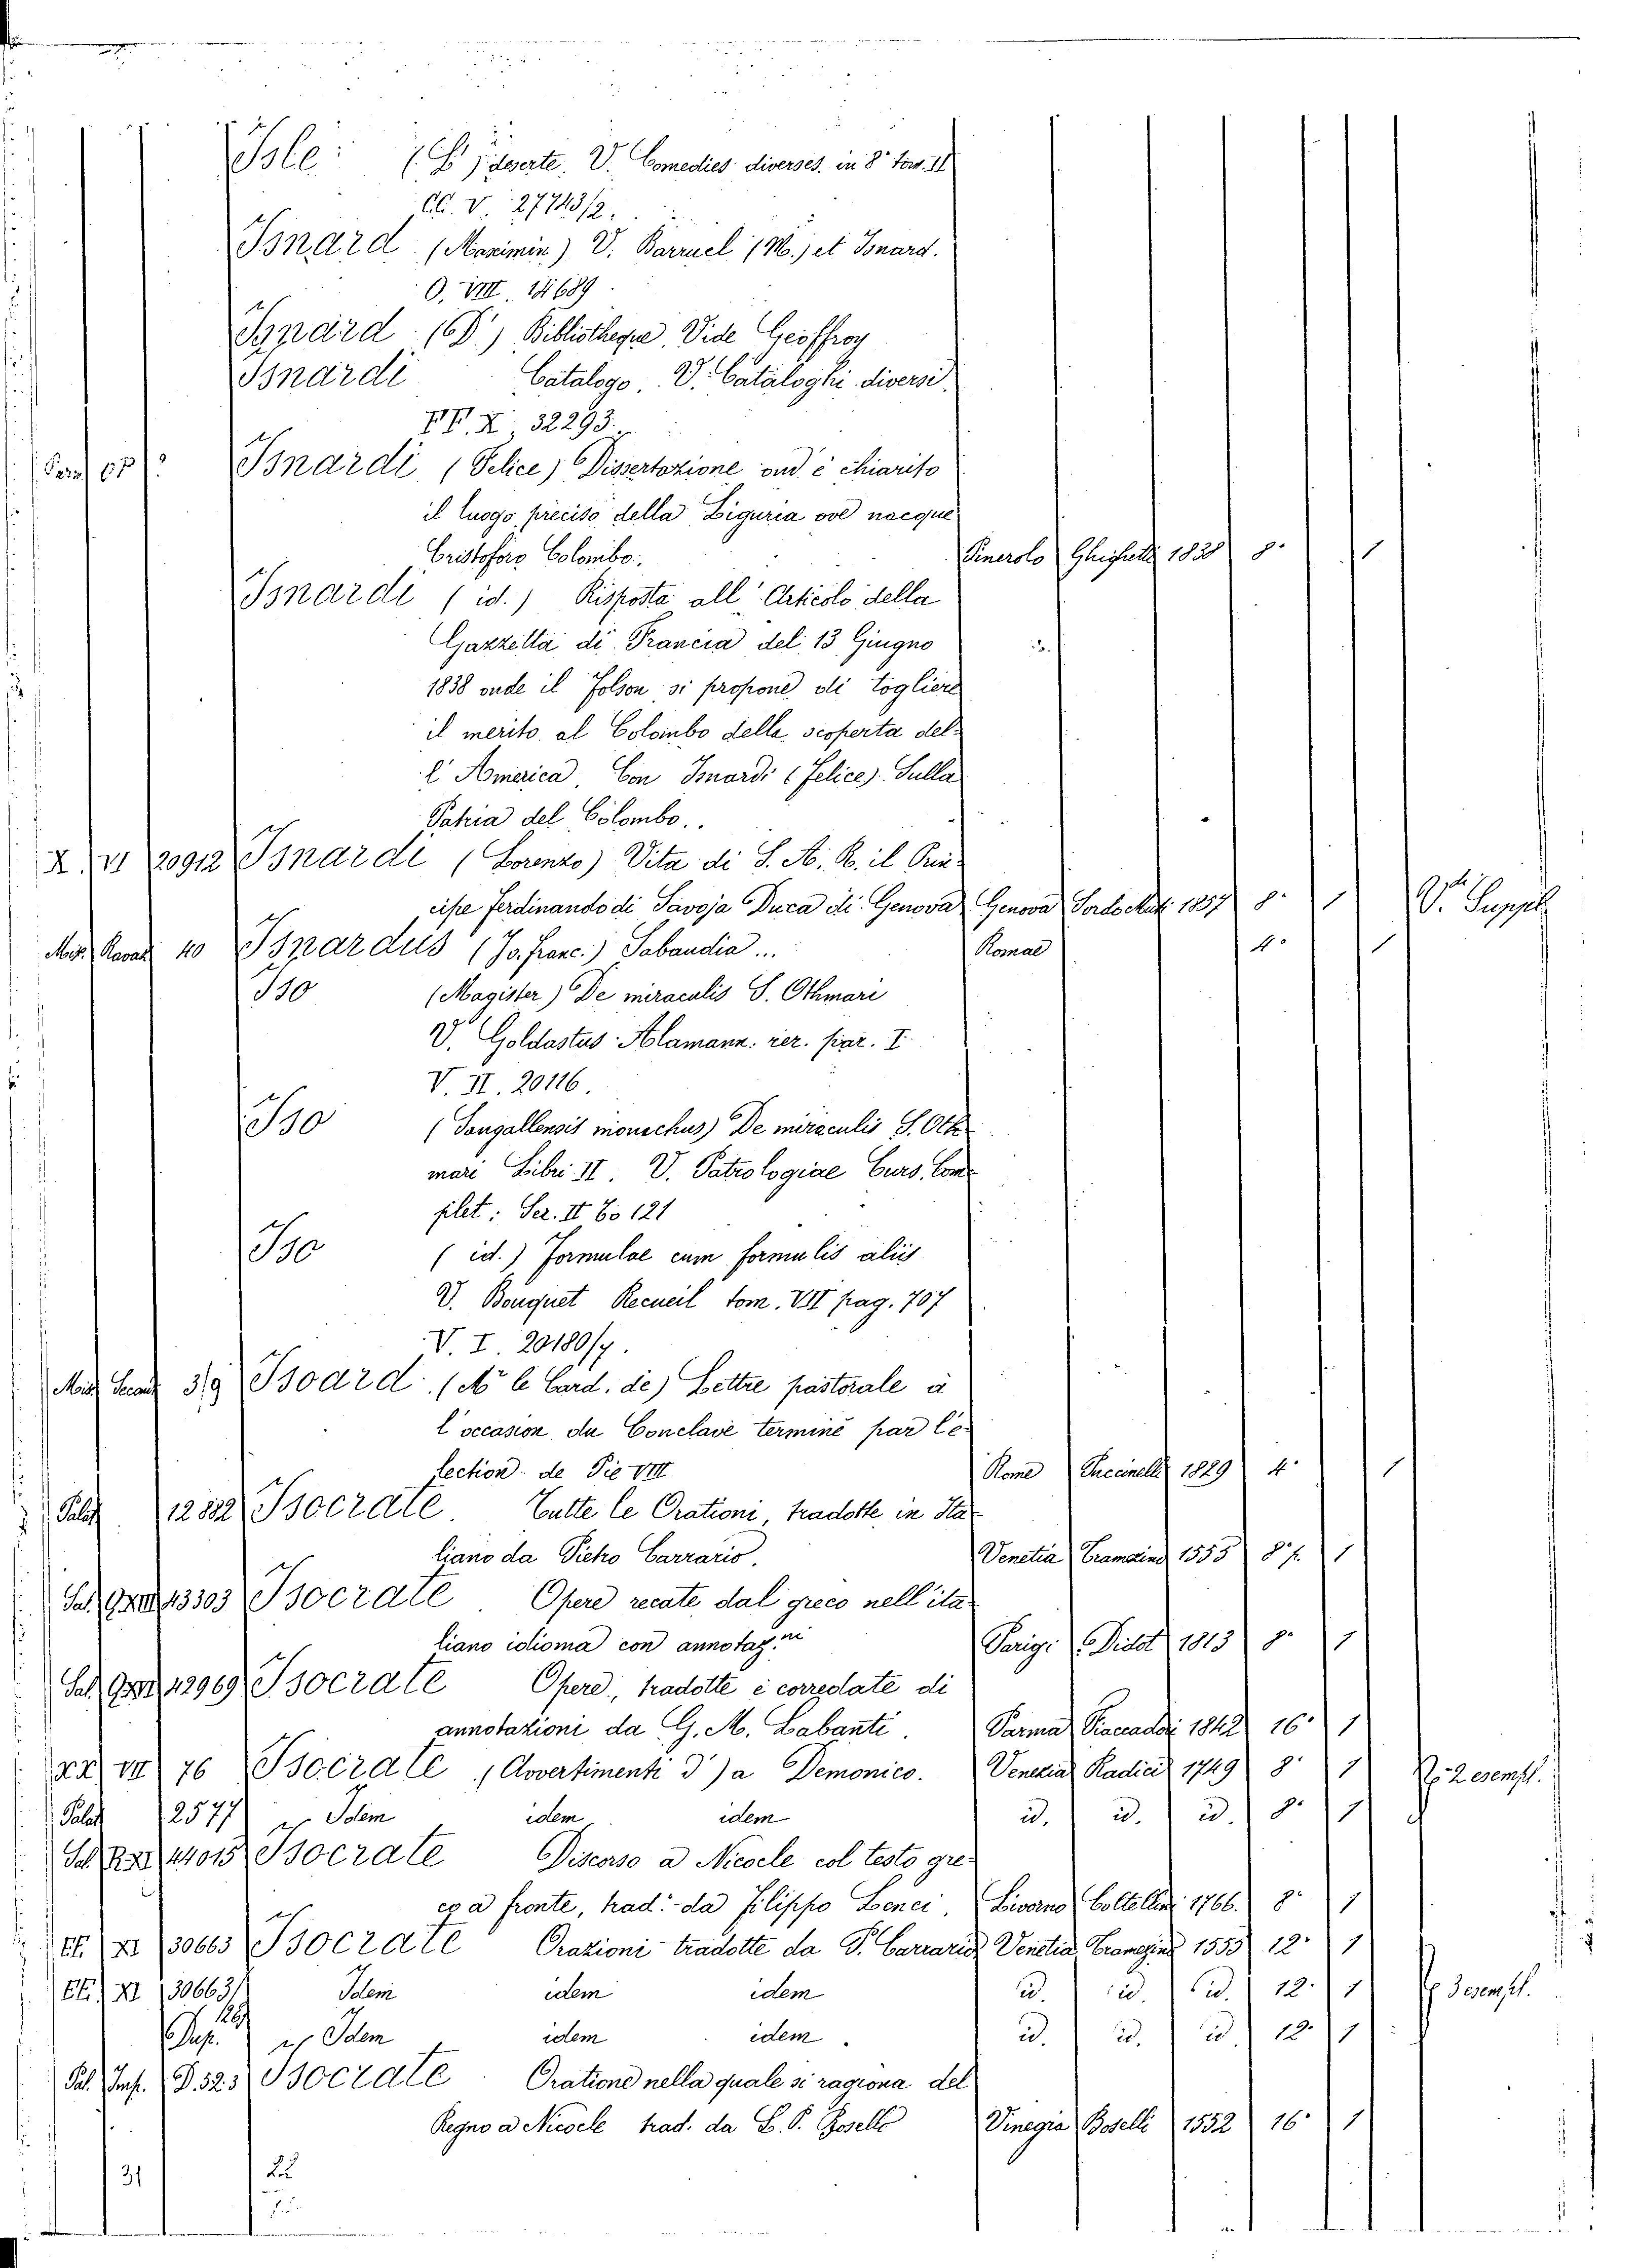 Isle: (L') deserte. V. Comedies diverses in 8° tom. 11
CC. V. 27743/2.
Isnard (Maximin) V. Barruel (M.) et Isnard.
O. VIII. 14689
Isnard (D') Bibliotheque Vide Geoffroy
Isnardi Catalogo. V. Cataloghi diversi
FF. X. 32293.
Isnardi (Felice) Dissertazione ond' è chiarito
il luogo preciso della Liguria ove nacque
Cristoforo Colombo. Pinerolo 1838 8° 1
Isnardi (id.) Risposta all' Articolo della
Gazzetta di Francia del 13 Giugno
1838 onde il Folson si propone di togliere
il merito al Colombo della scoperta del-
l' America. Con Isnardi (Felice) Sulla
Patria del Colombo.
X. VI 20912 Isnardi (Lorenzo) Vita di S. A. R. il Prin-
cipe Ferdinando di Savoja Duca di Genova Genova Sordo Muti 1857 8° 1 V. Suppl.
40 Isnardus (Jo. Franc.) Sabaudia ... Romae 4° 1
Iso (Magister) De miraculis S. Othmari
V. Goldastus Alamann. rer. par. I
V. II. 20116.
Iso (Sangallensis monachus) De miraculis S. Oth-
mari Libri II. V. Patrologiae Curs. Com-
plet: Ser. II To 121
Iso (id.) Formulae cum formulis aliis
V. Bouquet Recueil tom. VII pag. 707
V. I. 20180/7.
39 Isoard (Mr le Card. de) Lettre pastorale à
l'occasion du Conclave terminé par l'é-
lection de Pie VIII. Rome Puccinelli 1829 4° 1
Palat 12382 Isocrate. Tutte le Orationi, tradotte in Ita-
liano da Pietro Carrario. Venetia Tramezino 1555 8° p. 1
13303 Isocrate. Opere recate dal greco nell'ita-
liano idioma con annotaz.ni Parigi Didot 1813 8° 1
12969 Isocrate Opere, tradotte e corredate di
annotazioni da G. M. Labanti. Parma Fiaccadori 1842 16° 1
XX VII 76 Isocrate (Avvertimenti d') a Demonico. Venezia Radici 1749 8° 1 N° 2 esempl.
Palat 2577 Idem idem idem id. id. id. 8° 1
44015 Isocrate Discorso a Nicocle col testo gre-
co a fronte, trad. da Filippo Lenci. Livorno Coltellini 1766. 8° 1
EE. XI 30663 Isocrate Orazioni tradotte da P. Carrario Venetia Tramezino 1555 12° 1
EE. XI 30663/ Idem idem idem id. id. id. 12. 1 N° 3 esempl.
Sup. Idem idem idem. id. id. id. 12. 1
Pal. Imp. D. 523 Isocrate Oratione nella quale si ragiona del
Regno a Nicocle trad. da L. P. Rosello Vinegia Roselli 1552 16° 1
31 22